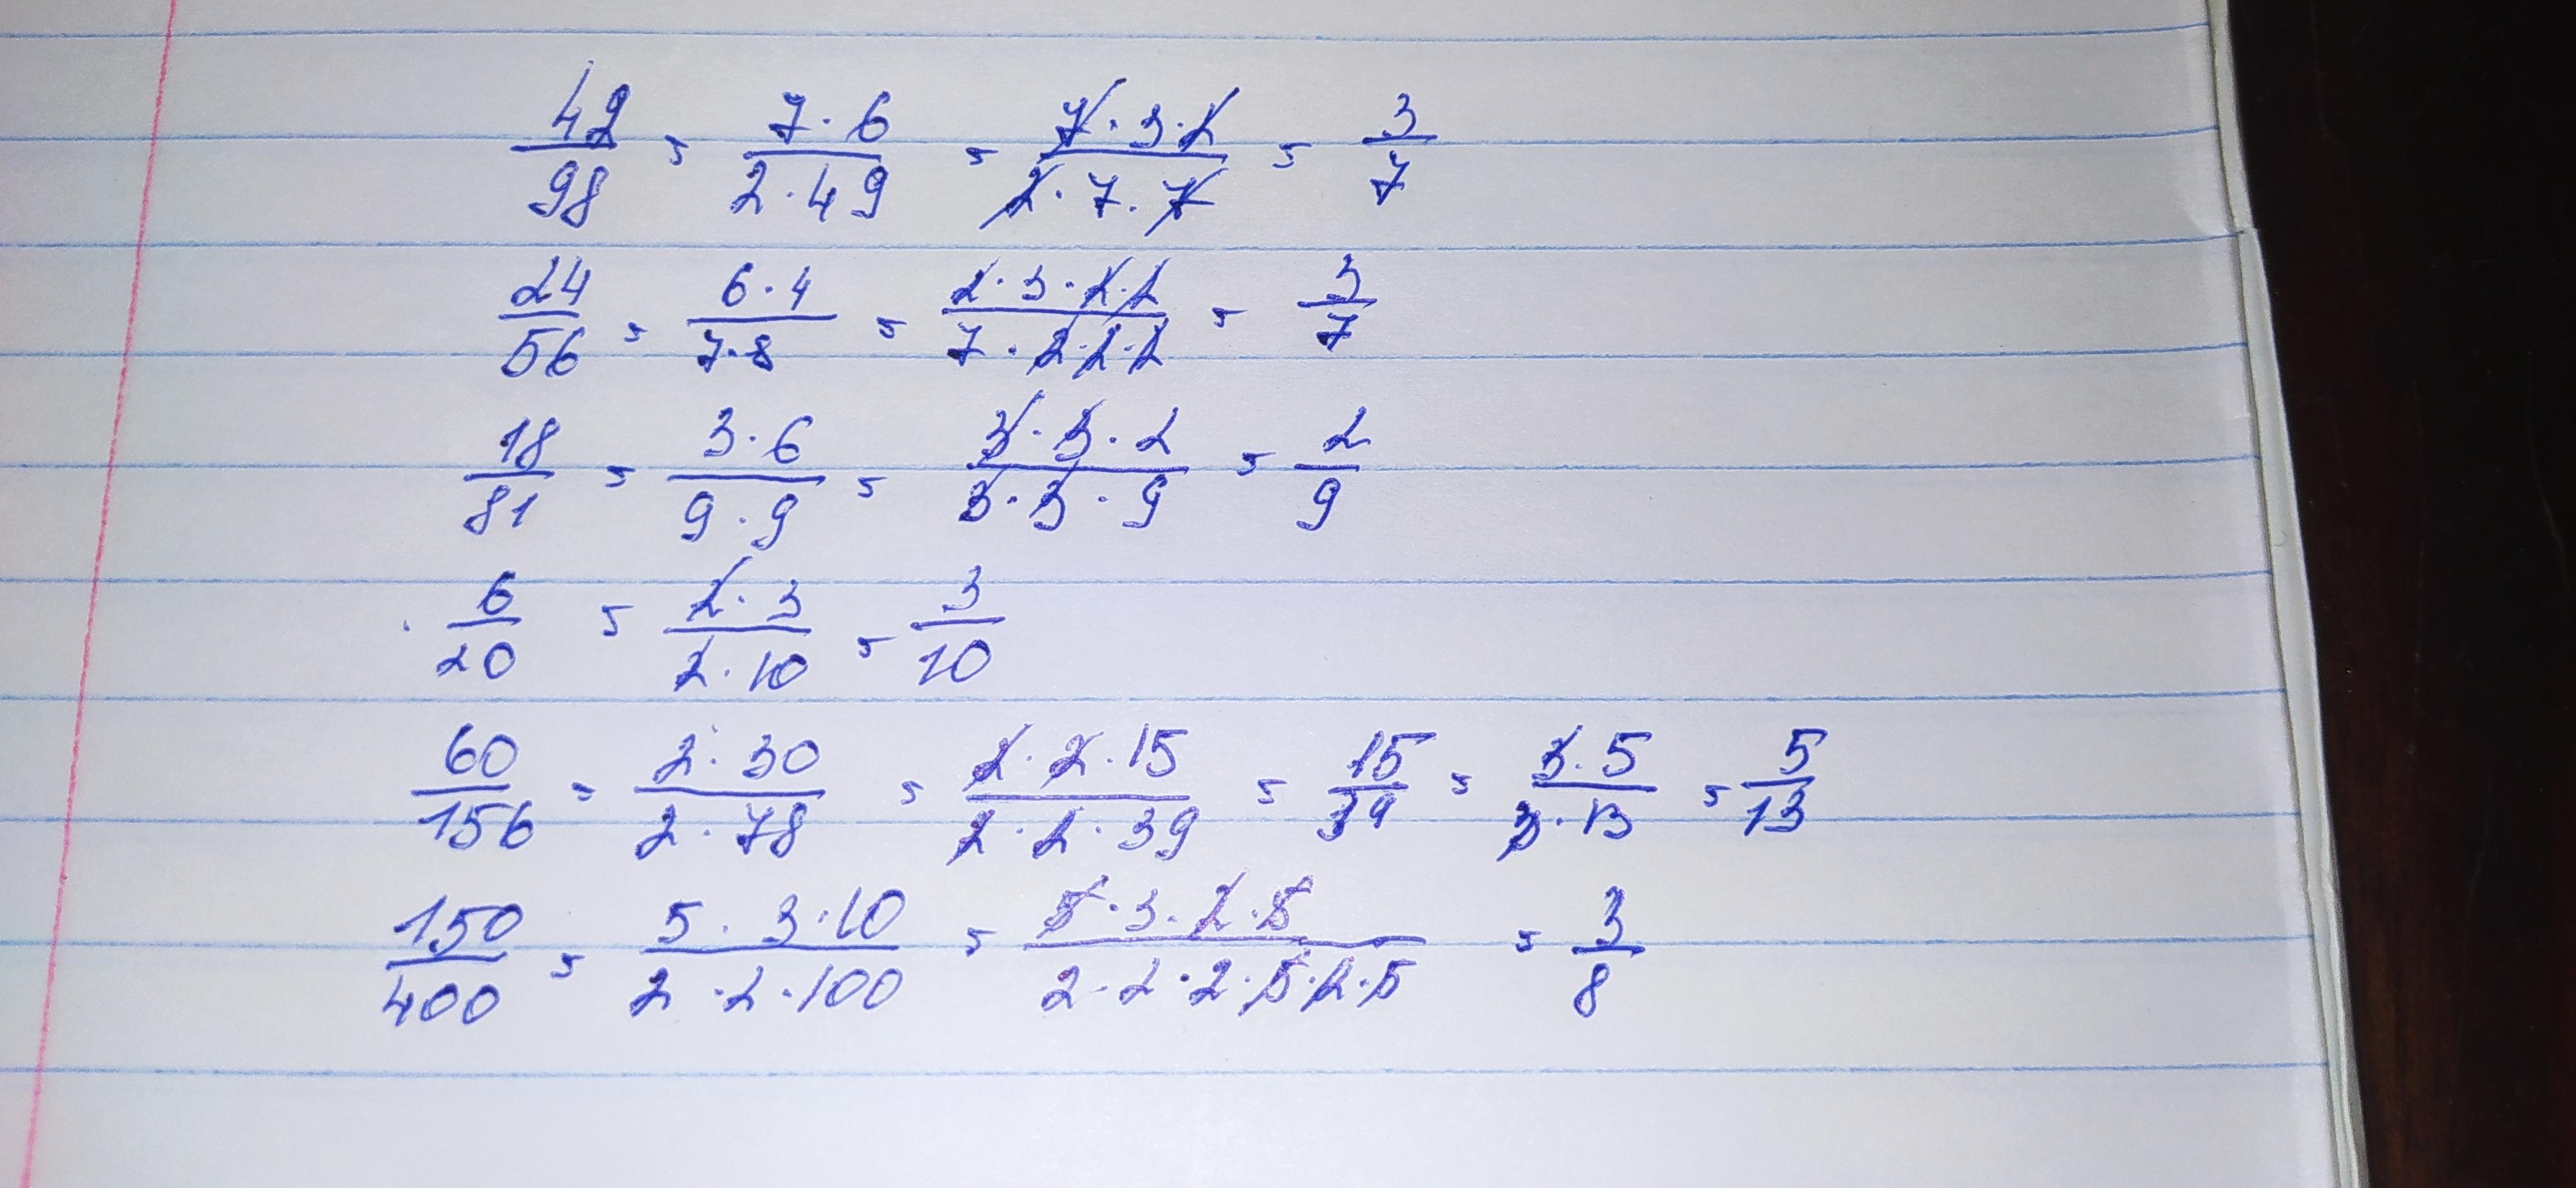 42/98 = 7·6/2·49 = 7·3·2/2·7·7 = 3/7
24/56 = 6·4/7·8 = 2·3·2·2/7·2·2·2 = 3/7
18/81 = 3·6/9·9 = 3·3·2/3·3·9 = 2/9
6/20 = 2·3/2·10 = 3/10
60/156 = 2·30/2·78 = 2·2·15/2·2·39 = 15/39 = 3·5/3·13 = 5/13
150/400 = 5·3·10/2·2·100 = 5·3·2·5/2·2·2·5·2·5 = 3/8